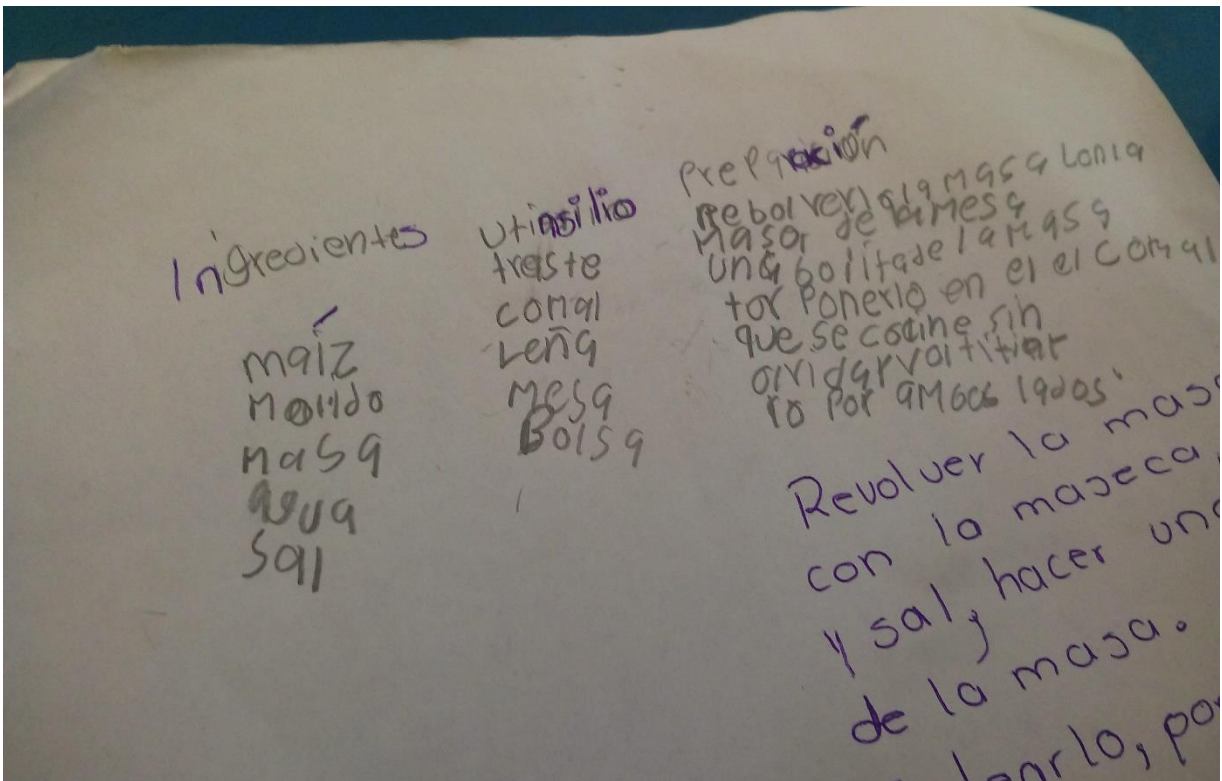 Ingredientes
maíz
Molido
Masa
agua
Sal
utinsilio
traste
comal
Leña
Mesa
Bolsa
Preparación
Rebolver la masa con la
de la mesa
una bolita de la masa
tor Ponerlo en el el comal
que se cocine sin
olvidar voltitiar
lo Por amoos lados
Revolver la mas
con la maseca,
y sal, hacer un
de la masa.